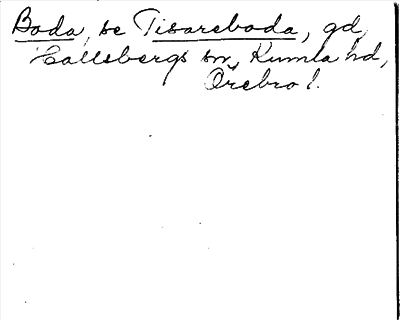 Boda, se Tisareboda, gd,
Hallsbergs sn, Kumla hd,
Örebro l.